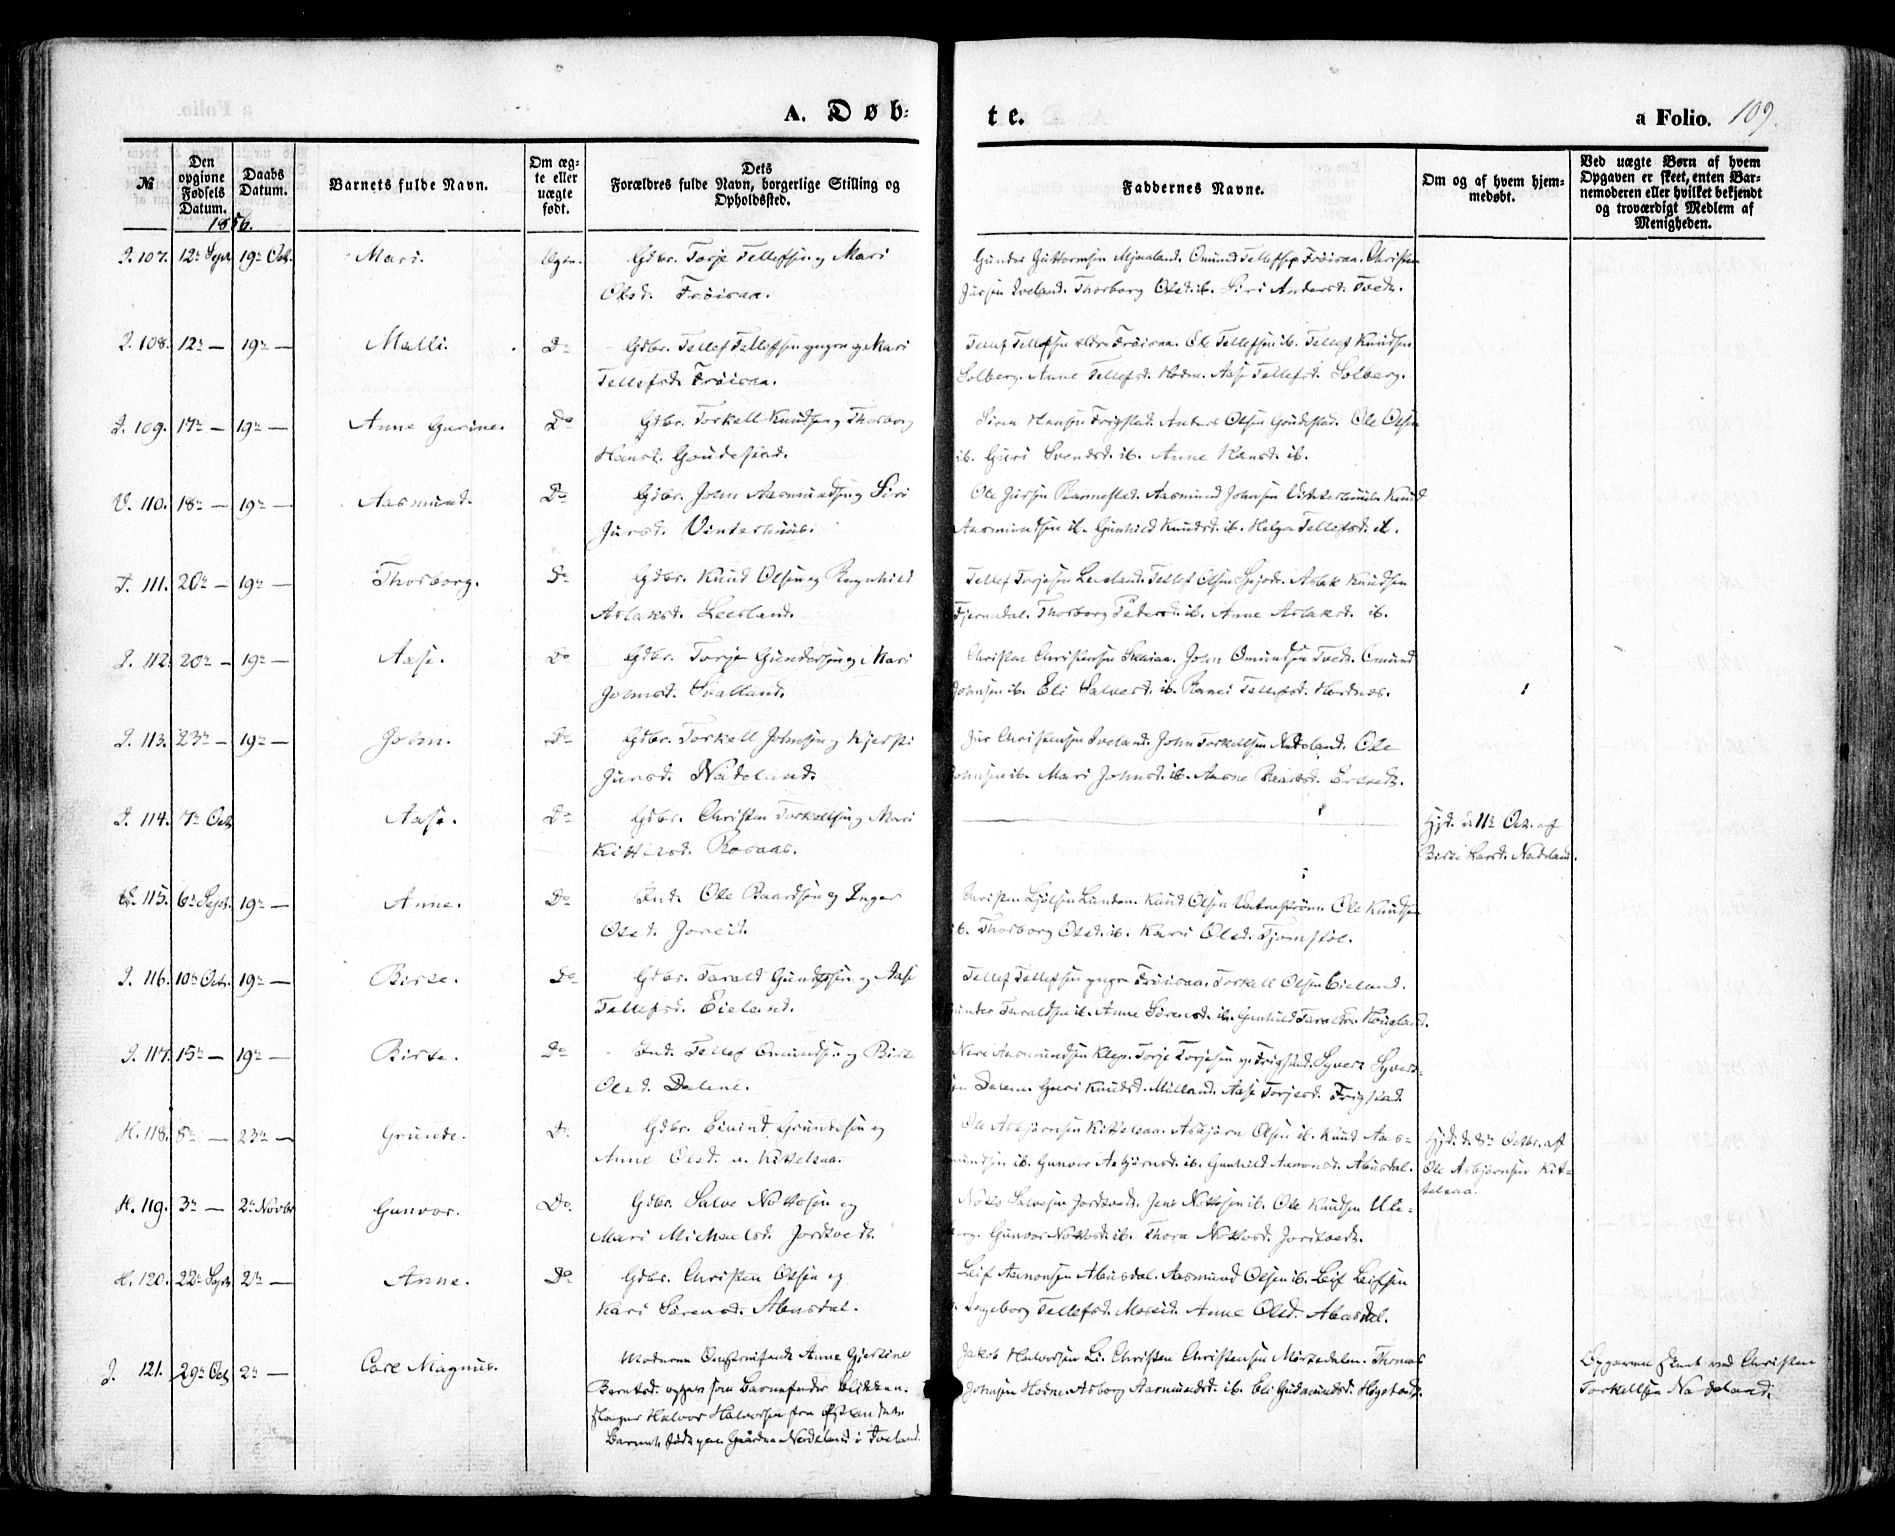 A. Døb-
te.
a Folio. 109.
№
Den opgivne Fødsels Datum.
Daabs Datum.
Barnets fulde Navn.
Om ægte eller uægte født.
Dets Forældres fulde Navn, borgerlige Stilling og Opholdssted.
Faddernes Navne.
Om og af hvem hjemmedøbt.
Ved uægte Børn af hvem Opgaven er skeet, enten Barnemoderen eller hvilket bekjendt og troværdigt Medlem af Menigheden.
1856.
I. 107. 12te Sept. 19de Oct. Mari. Ægte. Gdbr. Torje Tellefsen og Mari
Olsd. Frøisaa.
Gunder Guttormsen Mjaaland. Omund Tellefsen Frøisaa. Christen
Jursen Iveland. Thorborg Olsd. ib. Siri Andersd. Tvedt.
I. 108. 12te — 19de — Malli. Do Gdbr. Tellef Tellefsen yngre og Mari
Tellefsd. Frøisaa.
Tellef Tellefsen eldre Frøisaa. Ole Tellefsen ib. Tellef Knudsen
Solberg. Anne Tellefsd. Hodne. Aase Tellefsd. Solberg.
I. 109. 17de — 19de — Anne Gurine. Do Gdbr. Torkell Knudsen og Thorborg
Hansd. Goudestad.
Søren Hansen Frigstad. Anders Olsen Goudestad. Ole Olsen
ib. Guri Svendsd. ib. Anne Hansd. ib.
V. 110. 18de — 19de — Aasmund. Do Gdbr. John Aasmundsen og Siri
Jursd. Vinterhuus.
Ole Jursen Ramestad. Aasmund Johnsen Vinterhuus. Knud
Aasmundsen ib. Gunhild Knudsd. ib. Helga Tellefsd. ib.
I. 111. 20de — 19de — Thorborg. Do Gdbr. Knud Olsen og Ragnhild
Aslaksd. Leesland.
Tellef Torjesen Leesland. Tellef Olsen Aslak Knudsen
Thorborg Pedersd. ib. Anne Aslaksd. ib.
I. 112. 20de — 19de — Aase. Do Gdbr. Torje Gundersen og Mari
Johnsd. Svalland.
Christen Christensen Skaiaa. John Omundsen Tvedt. Omund
Johnsen ib. Eli Salvesd. ib. Tellefsd. Hordnes.
I. 113. 23de — 19de — John. Do Gdbr. Torkell Johnsen og Kjersti
Jursd. Nadeland.
Jur Christensen Iveland. John Torkellsen Nadeland. Ole
Johnsen ib. Mari Johnsd. ib. Aasne
I. 114. 7de Oct. Aase. Do Gdbr. Christen Torkellsen og Mari
Kittelsd. Rosaas.
Hjd. d. 11te Oct. af
Birte Larsd. Nadeland.
V. 115. 6te Sept. 19de — Anne. Do Ind. Ole Baardsen og Inger
Olsd. Joreid.
Christen Ljølsen Lunden. Knud Olsen Vatnestrøm. Ole Knudsen
ib. Thorborg Olsd. ib. Kari Olsd. Tjomstøl.
I. 116. 10de Oct. 19de — Birte. Do Gdbr. Tarald Gundersen og Aase
Tellefsd. Eieland.
Tellef Tellefsen yngre Frøisaa. Torkell Olsen Eieland.
Gunder Taraldsen ib. Anne Sørensd. ib. Gunhild Taraldsd. Hougland.
I. 117. 15de — 19de — Birte. Do Ind. Tellef Omundsen og Birte
Olsd. Dalene.
Aasmundsen Klep. Torje Torjesen Frigstad. Syvert Syvert-
sen Dalene. Guri Knudsd. Aase Torjesd. Frigstad.
H. 118. 8de — 23de — Grunde. Do Gdbr. Eivind Grundesen og
Anne Olsd. Kittelsaa.
Ole Asbjørnsen Kittelsaa. Asbjørn Olsen ib. Knud Aas-
mundsen ib. Gunvor Asbjørnsd. ib. Gunhild Aanonsd. Abusdal.
Hjd. d. 8de Octbr. af
Ole Asbjørnsen Kit-
telsaa.
H. 119. 3de — 2den Novbr Gunvor. Do Gdbr. Salve Nottosen og
Mari Michaelsd. Jordtvedt.
Notto Salvesen Jordtvedt. Jens Nottosen ib. Ole Knudsen Ule-
berg. Gunvor Nottosd. ib. Thora Nottosd. Jordtvedt.
H. 120. 22de Sept. 2den — Anne. Do Gdbr. Christen Olsen og
Kari Sørensd. Abusdal.
Leif Aanonsen Abusdal. Aasmund Olsen ib. Leif Leifsen
Ingeborg Tellefsd. Moseid. Anne Olsd. Abusdal.
I. 121. 29de Oct. 2den — Carl Magnus.
Moderen Omstreifende Anne Gjertine
Berntsd. opgiver som Barnefader Blikken-
slager Halvor Halvorsen fra Østlandet.
Barnet født paa Gaarden Nordeland i Iveland.
Jakob Halvorsen Li. Christen Christensen Mørtedalen. Thomas
Johnsen Hodne. Asborg Aasmundsd. ib. Eli Gudmundsd. Høgstad.
Opgaven skeet ved Christen
Torkellsen Nadeland.